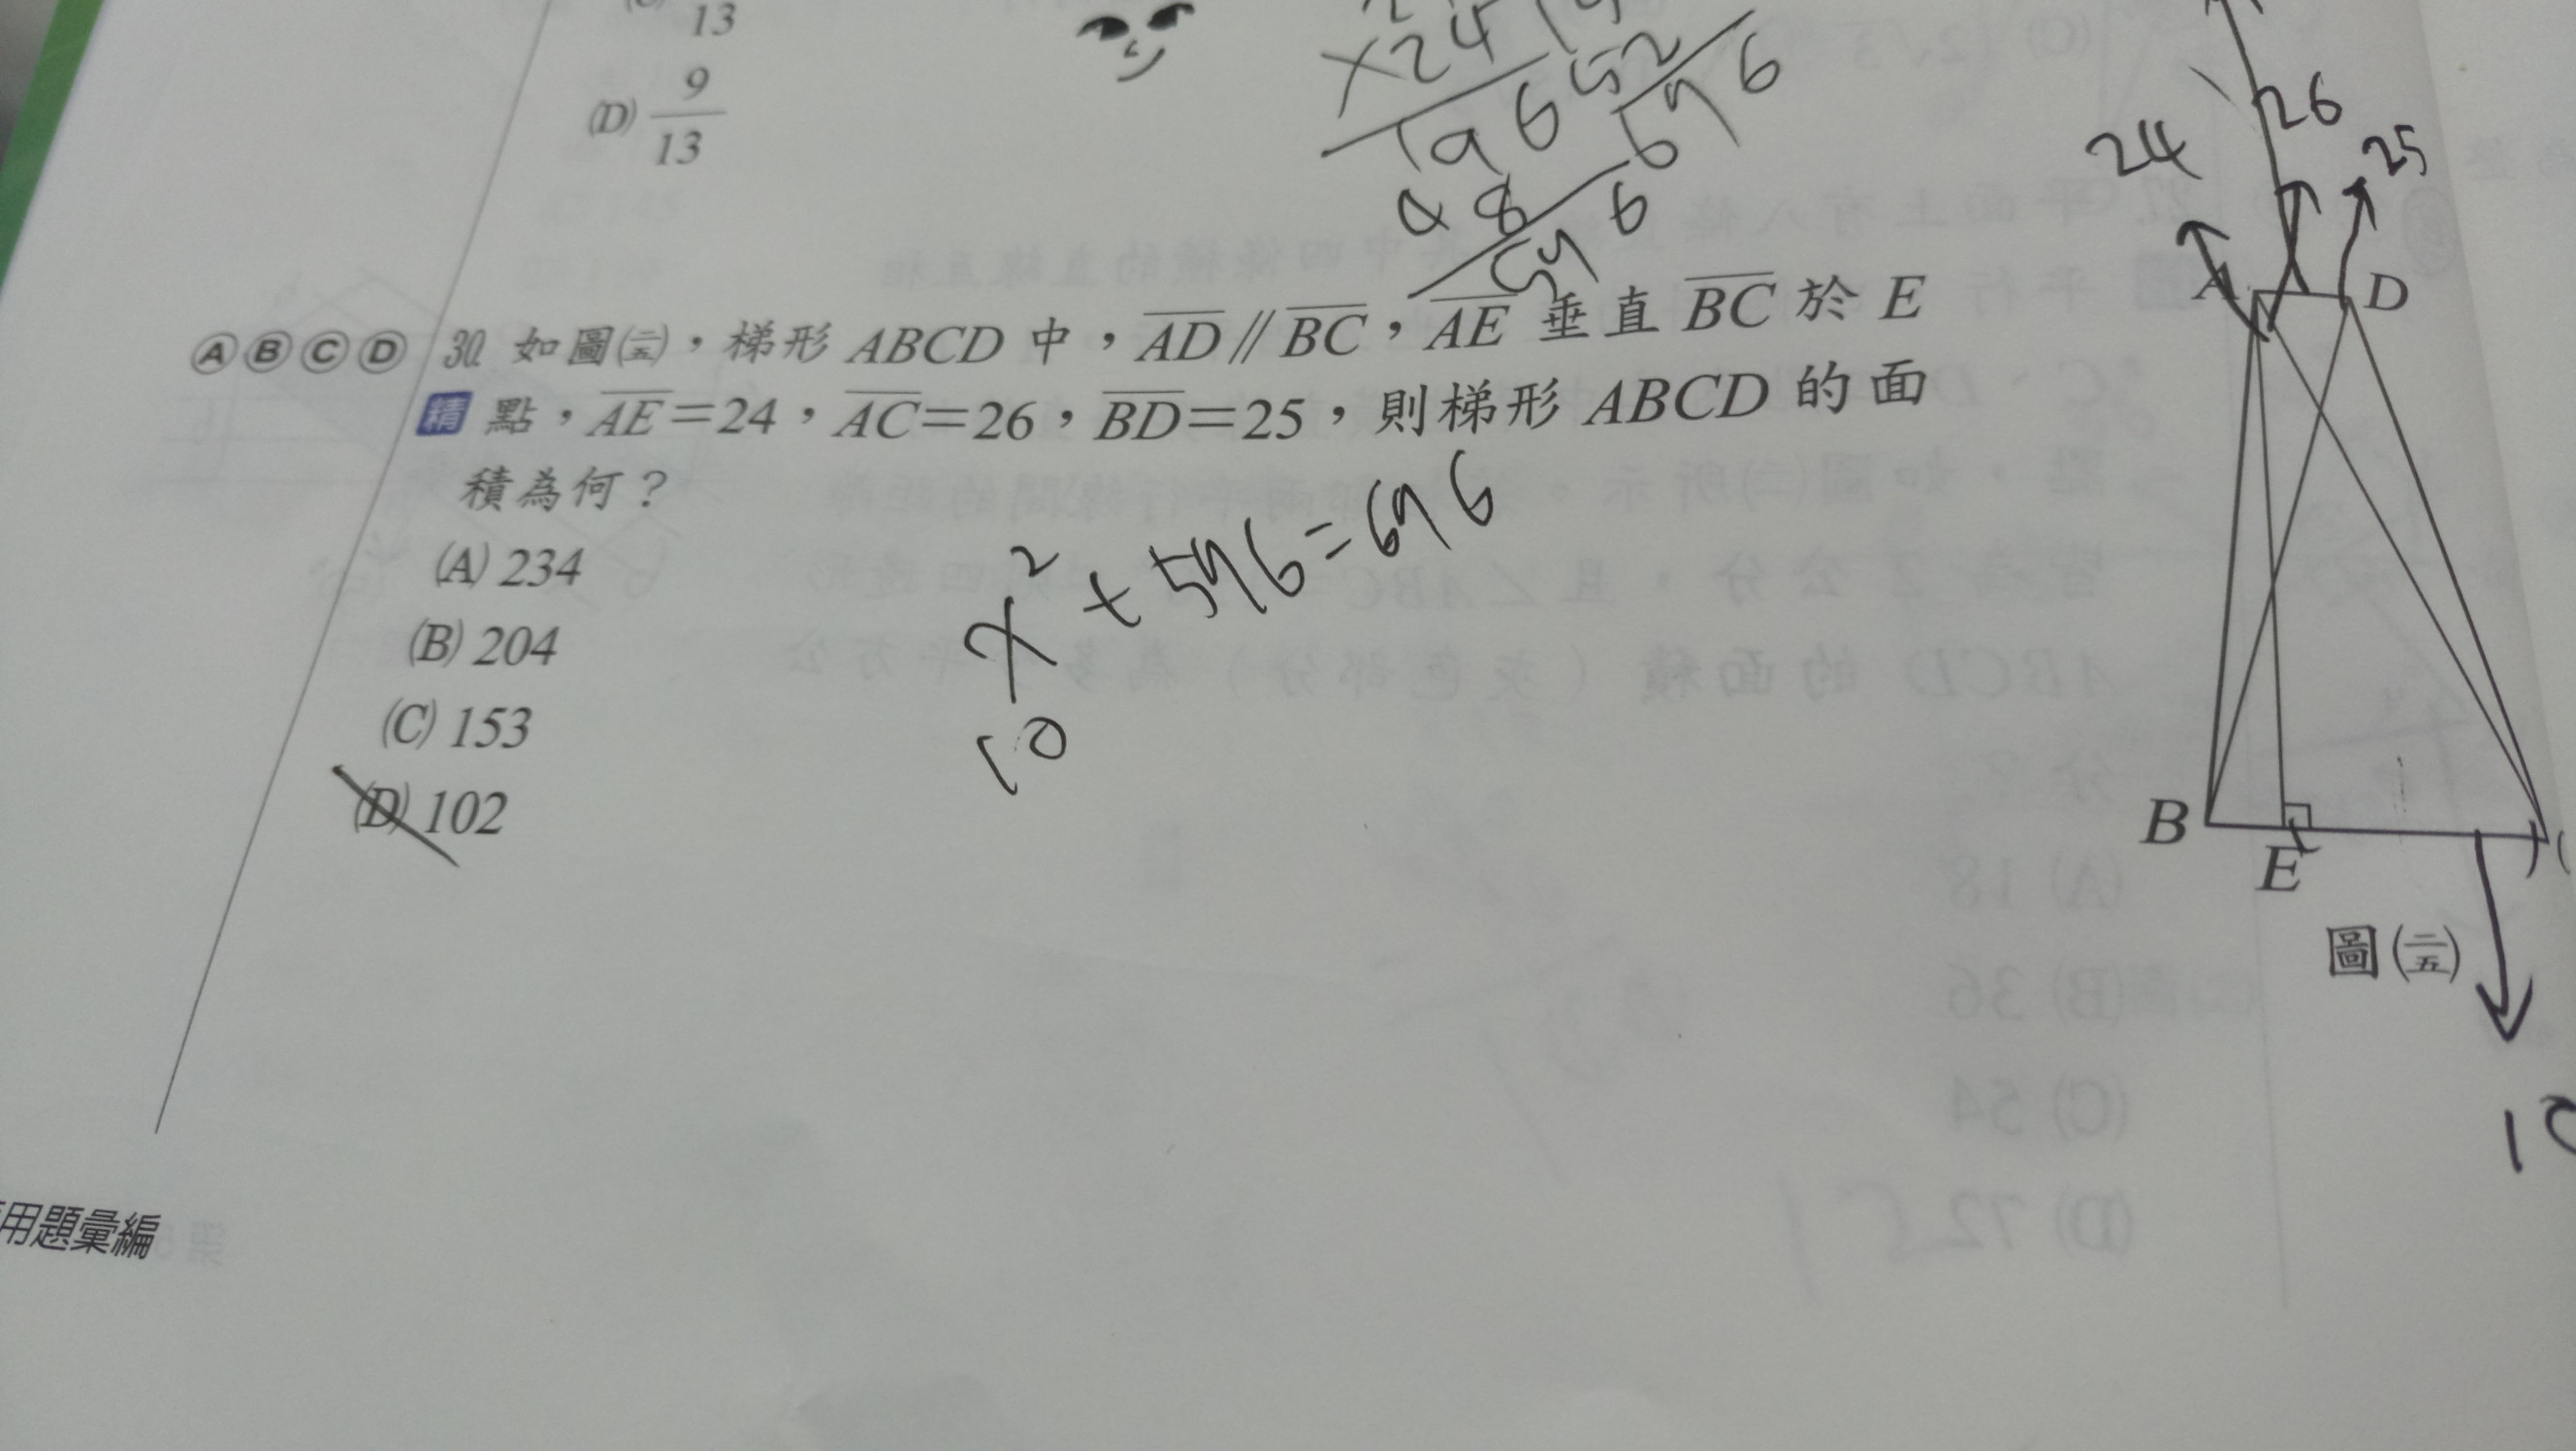 13
(D) 9/13
×24
1965
48
596
52
696
Ⓐ Ⓑ Ⓒ Ⓓ 30. 如圖(二五)，梯形 ABCD 中，AD∥BC，AE 垂直 BC 於 E
精 點，AE=24，AC=26，BD=25，則梯形 ABCD 的面
積為何？
(A) 234
(B) 204
(C) 153
(D) 102
x²+596=696
10
24
26
25
A
D
B
E
圖(二五)
用題彙編